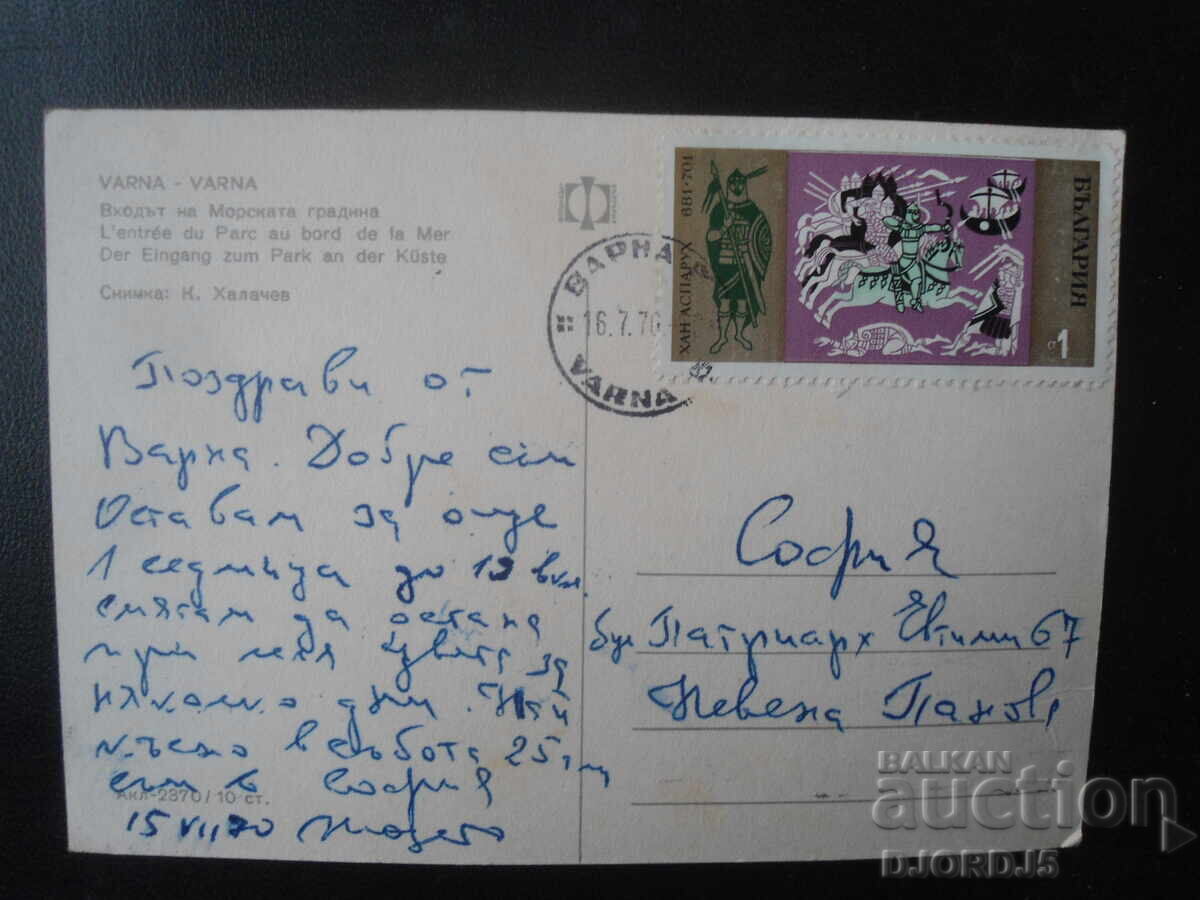 VARNA - VARNA
Входът на Морската градина
L'entrée du Parc au bord de la Mer
Der Eingang zum Park an der Küste
Снимка: К. Халачев
ВАРНА
16.7.70
VARNA
ХАН АСПАРУХ 681-701
БЪЛГАРИЯ
1
Поздрави от
Варна. Добре съм
Оставам за още
1 седмица до 19 вкл.
смятам да остана
при леля Цвета за
няколко дни. Най
късно в събота 25ти
съм в София
15 VII 70
София
бул Патриарх Евтими 67
Невена Панова
Акл-2370/10 ст.
BALKAN
auction
DJORDJ5